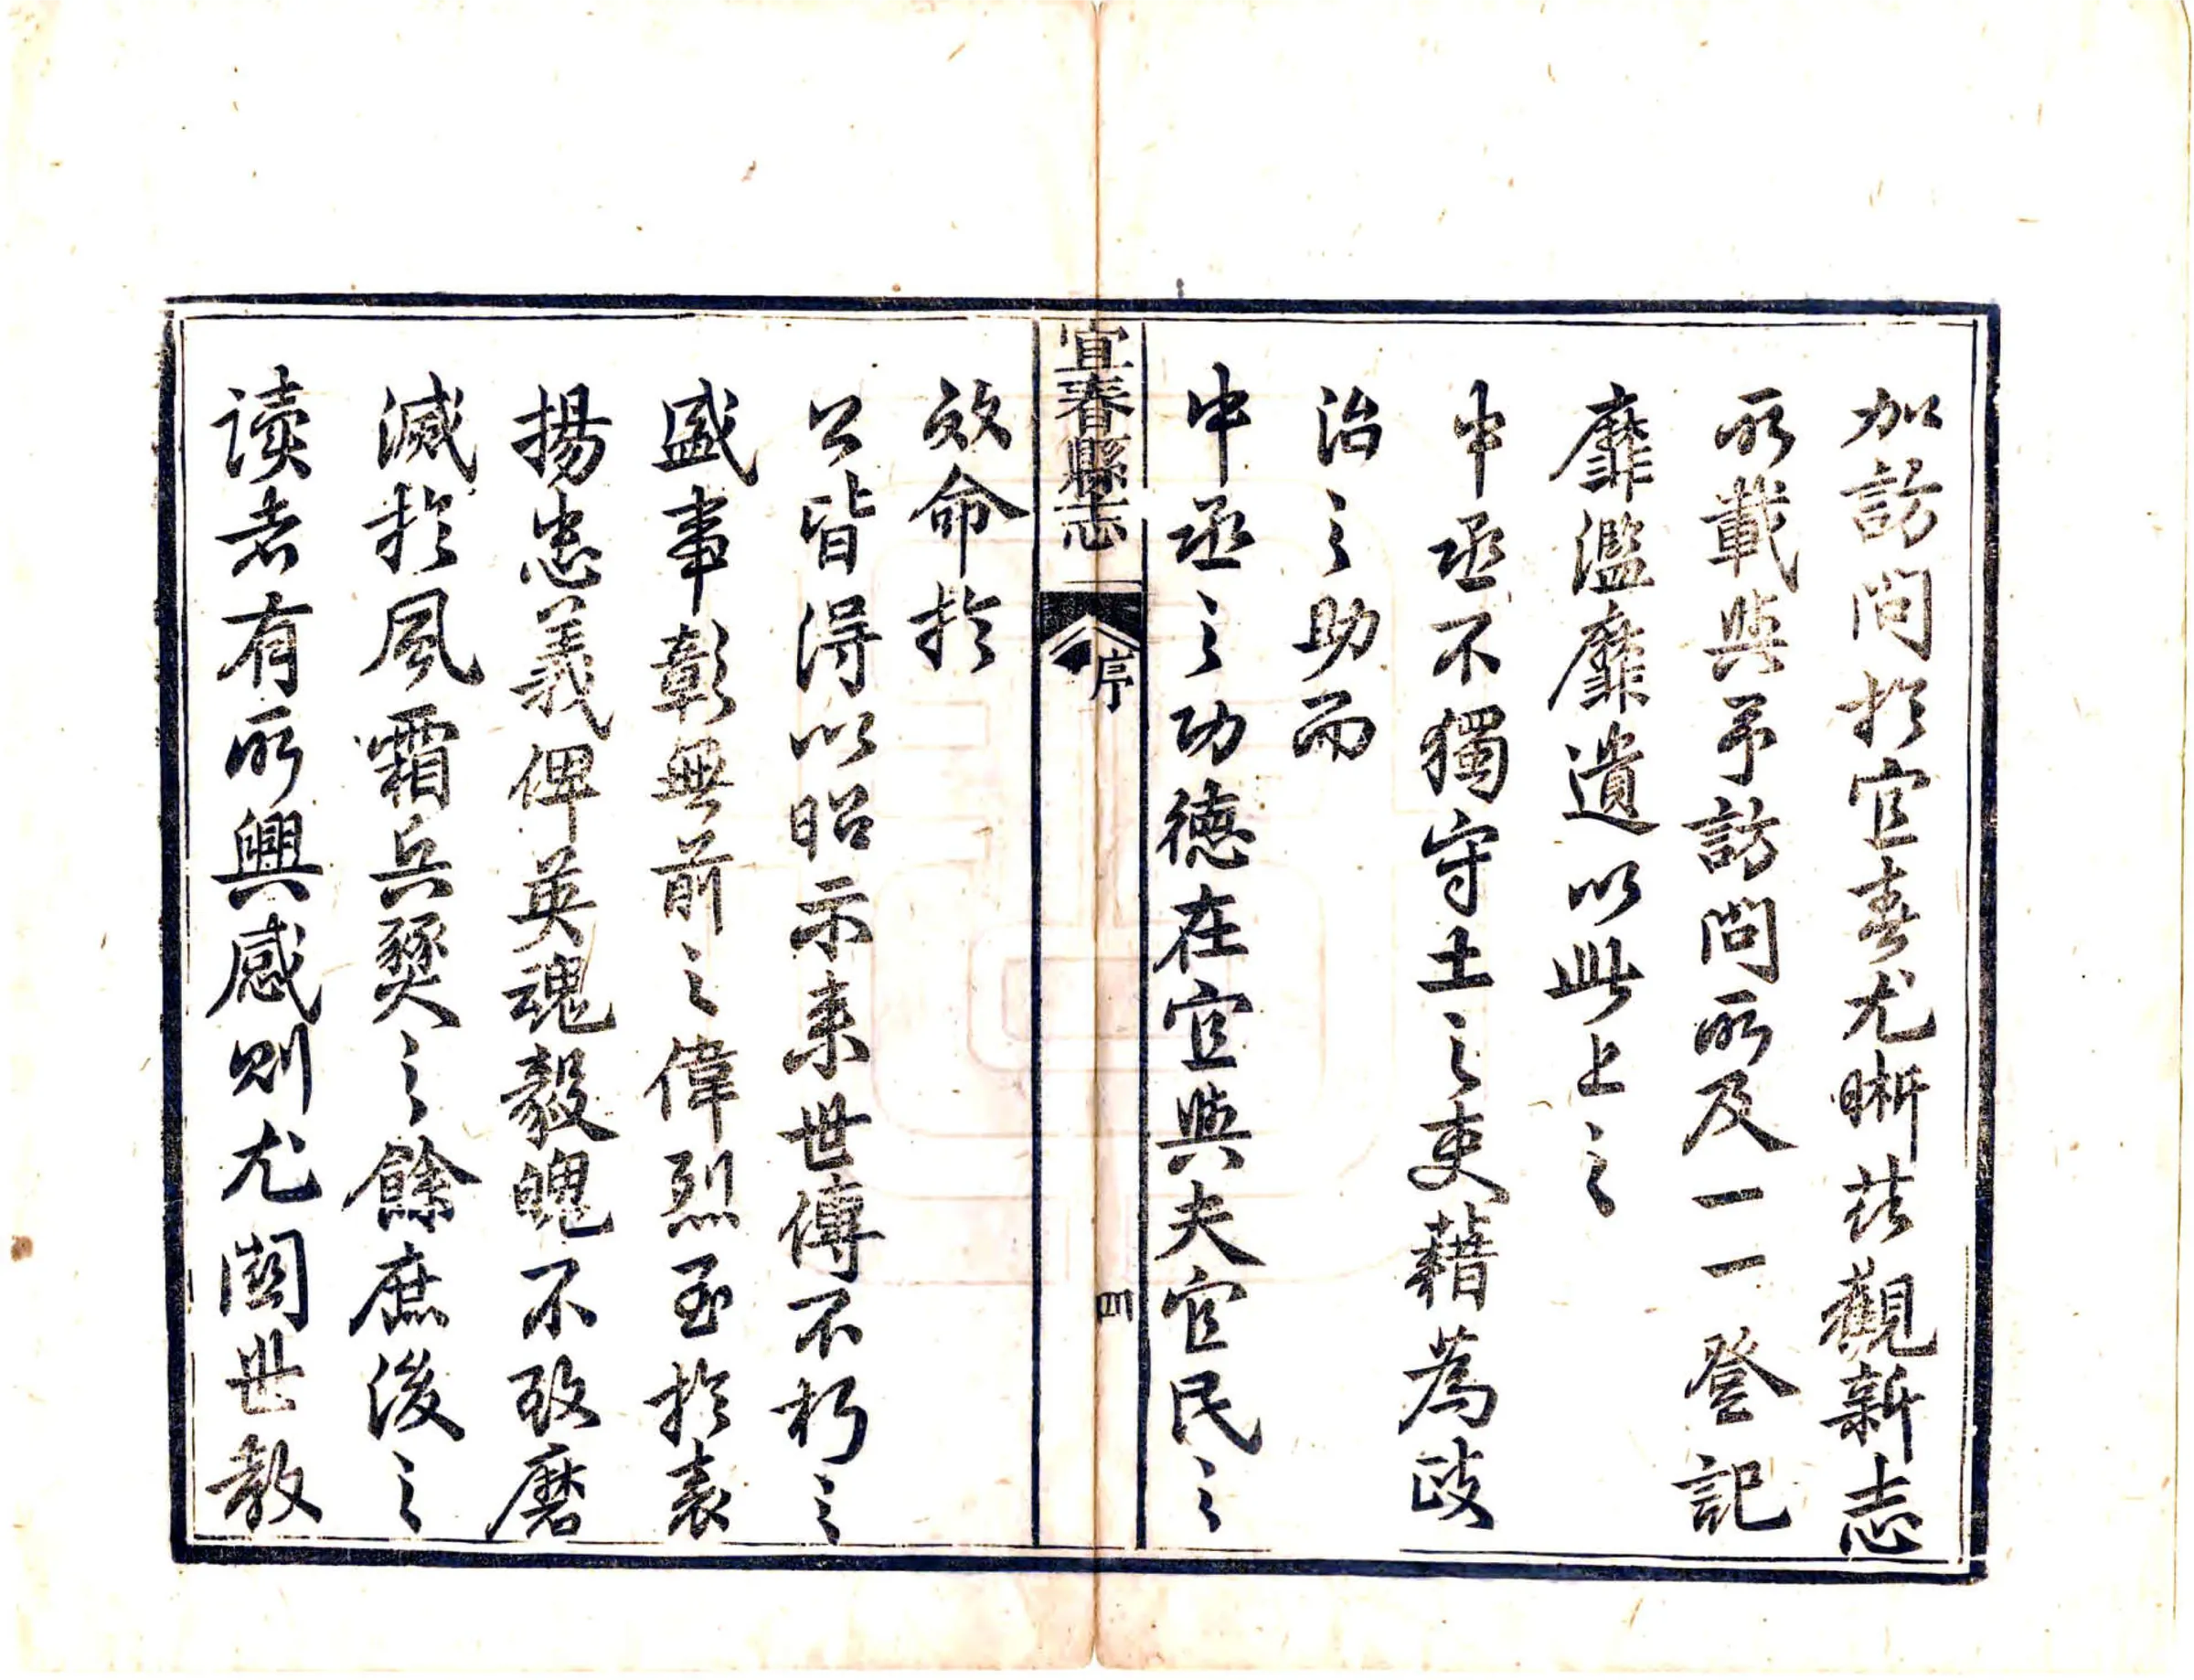 加訪問於宜春尤晰茲觀新志
所載與予訪問所及一一登記
靡濫靡遺以此上之
中丞不獨守土之吏藉為政
治之助而
中丞之功德在宜與夫官民之
宜春縣志
序
四
效命於
公皆得以昭示来世傳不朽之
盛事彰無前之偉烈至於表
揚忠義俾英魂毅魄不致磨
滅於風霜兵燹之餘庶後之
读者有所興感则尤関世教